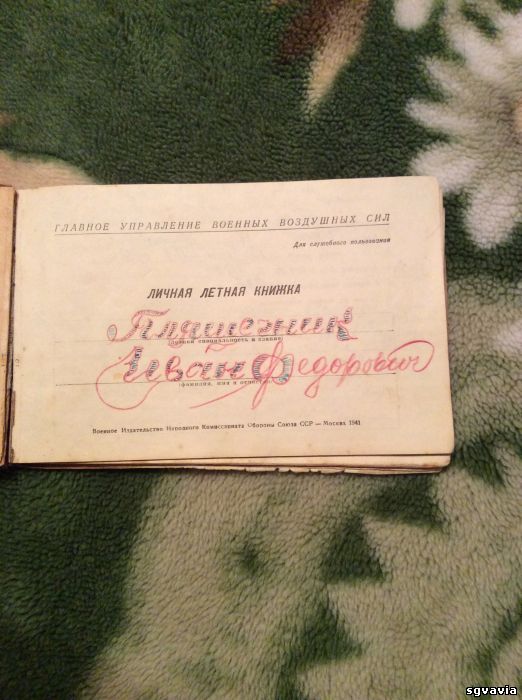 ГЛАВНОЕ УПРАВЛЕНИЕ ВОЕННЫХ ВОЗДУШНЫХ СИЛ
Для служебного пользования
ЛИЧНАЯ ЛЕТНАЯ КНИЖКА
Пляшечник
(летная специальность и звание)
Иван Федорович
(фамилия, имя и отчество)
Военное Издательство Народного Комиссариата Обороны Союза ССР — Москва 1941
sgvavia